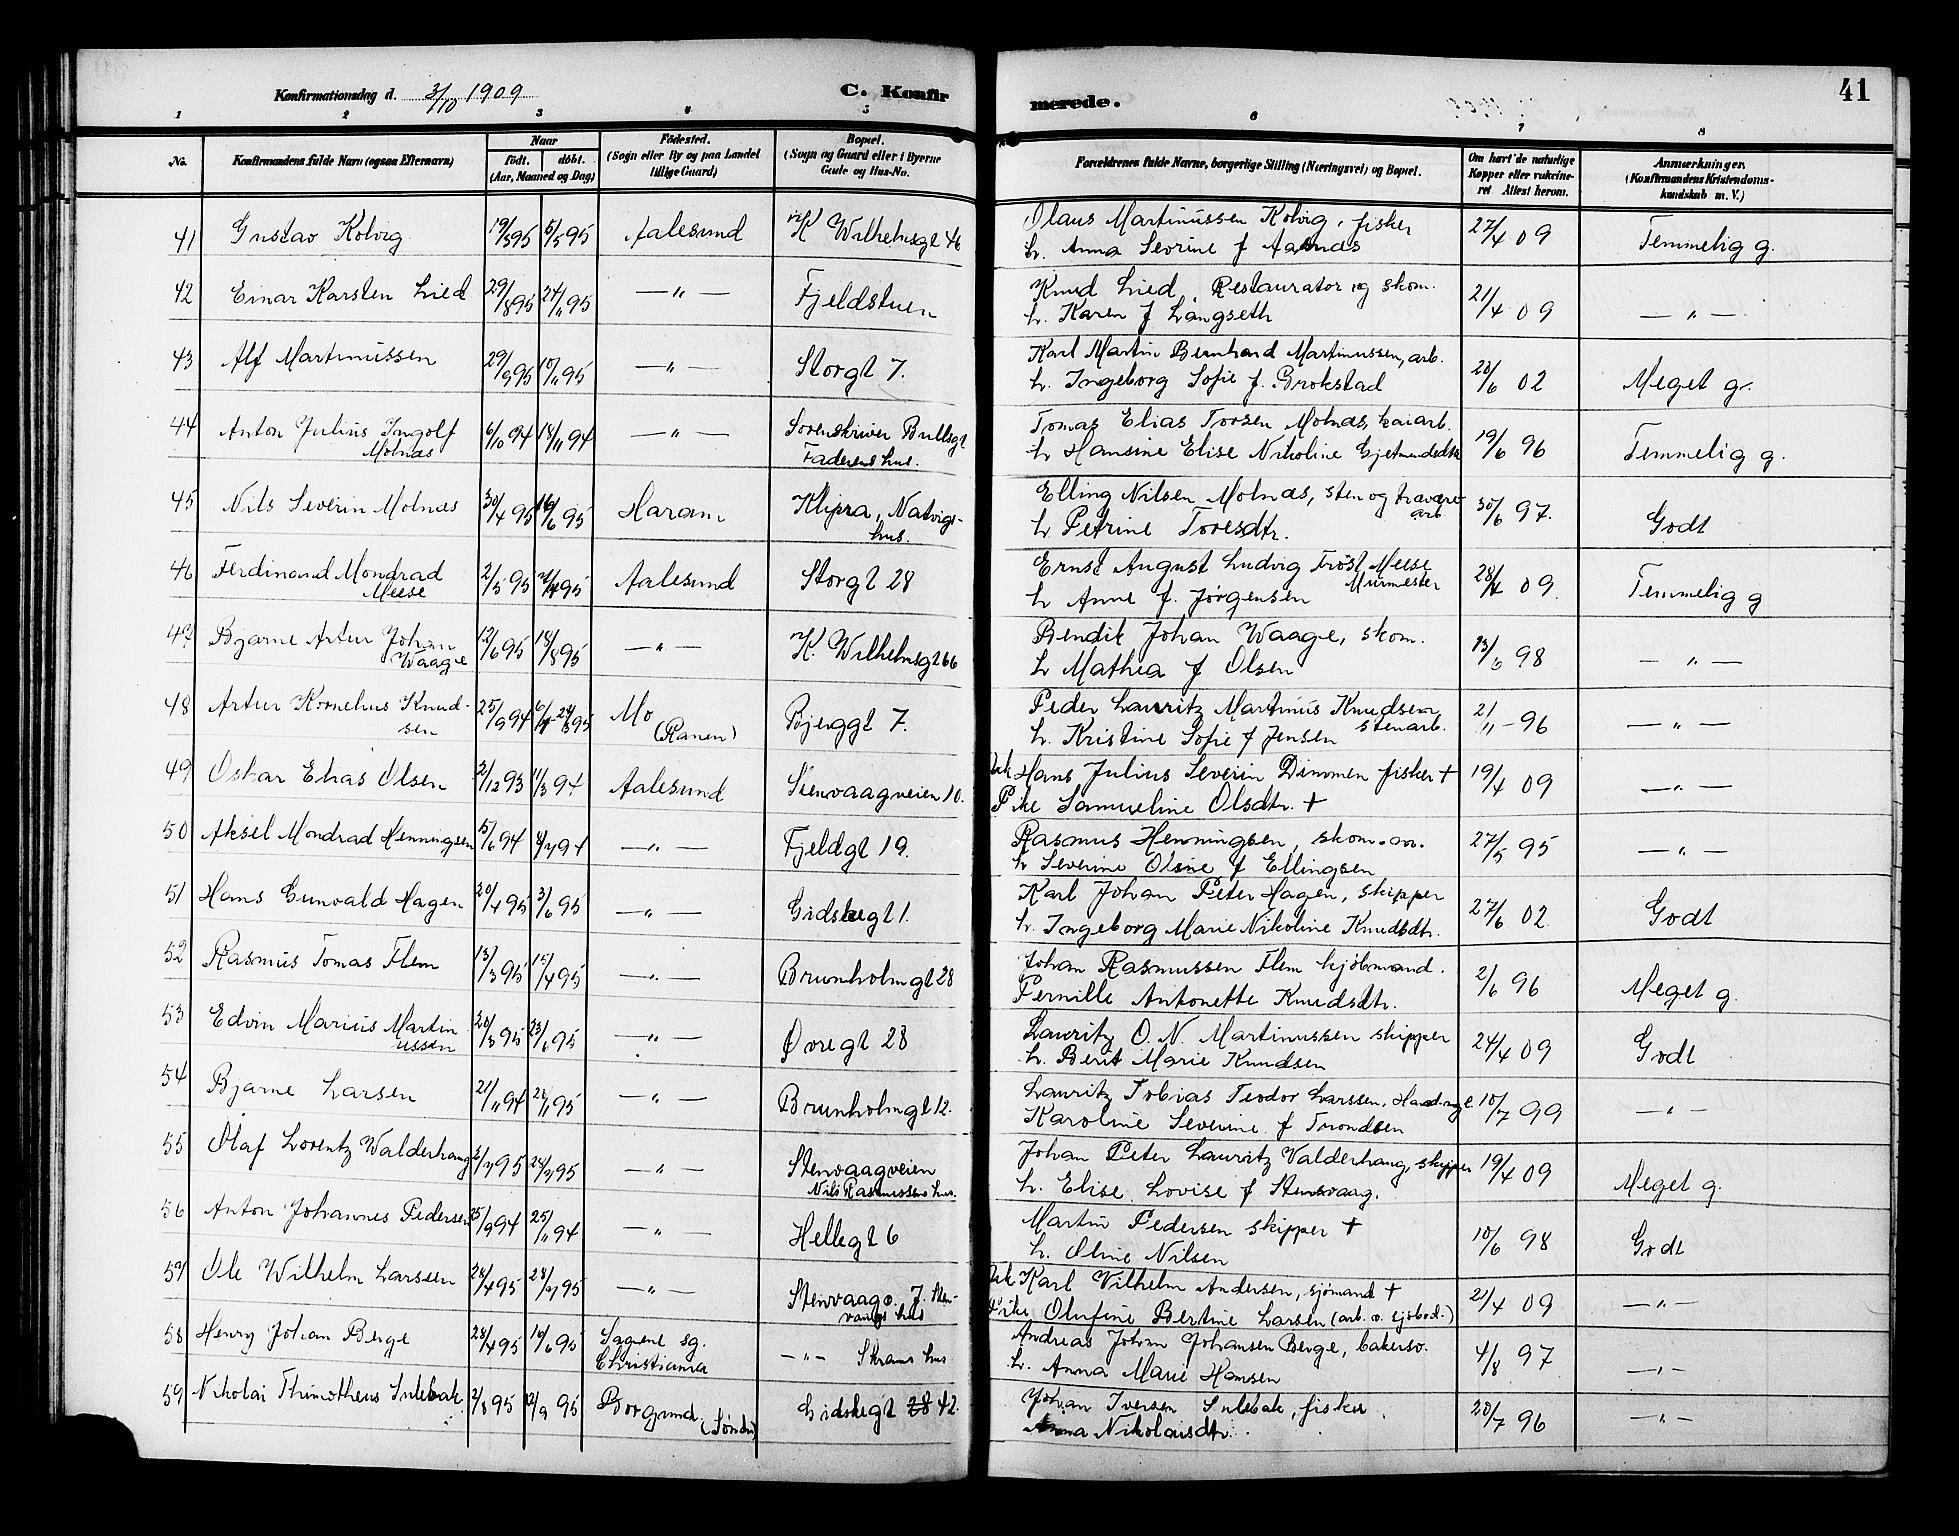 Konfirmationsdag d. 3/10 1909
C. Konfirmerede.
41
1 2 3 4 5 6 7 8
No.
Konfirmandens fulde Navn (ogsaa Efternavn)
Naar
født. døbt.
(Aar, Maaned og Dag)
Fødested.
(Sogn eller By og paa Landet
tillige Gaard)
Bopæl.
(Sogn og Gaard eller i Byerne
Gade og Hus-No.
Forældrenes fulde Navne, borgerlige Stilling (Næringsvei) og Bopæl.
Om havt de naturlige
Kopper eller vakcine-
ret Attest herom.
Anmærkninger.
(Konfirmandens Kristendoms-
kundskab m. V.)
41 Gustav Kolvig 19/3 95 5/5 95 Aalesund K Wilhelmsgt 46
Olaus Martinussen Kolvig, fisker
h. Anna Sevrine f Aasnæs
27/4 09 Temmelig g.
42 Einar Karsten Lied 29/8 95 24/11 95 —"— Fjeldstuen
Knud Lied, Restaurator og skom.
h. Karen f Langseth
21/4 09 —"—
43 Alf Martinussen 29/9 95 10/11 95 —"— Storgt 7.
Karl Martin Bernhard Martinussen, arb.
h. Ingeborg Sofie f. Brokstad
20/6 02 Meget g.
44 Anton Julius Ingolf
Molnæs
6/10 94 18/11 94 —"— Sorenskriver Bullsgt
Faderens hus.
Tomas Elias Torsen Molnæs, kaiarb.
h Hansine Elise Nikoline Gjetmundsdtr
19/6 96 Temmelig g.
45 Nils Severin Molnæs 30/4 95 16/6 95 Haram Klipra, Natvigs-
hus.
Elling Nilsen Molnæs, sten og travare
arb.
h Petrine Toresdtr.
30/6 97. Godt
46 Ferdinand Mondrad
Meese
2/3 95 95 Aalesund Storgt 28
Ernst August Ludvig Frøst Meese
Murmester
h Anne f. Jørgensen
28/4 09. Temmelig g
47 Bjarne Artur Johan
Waage
12/6 95 18/8 95 —"— K. Wilhelmsgt 66
Bendik Johan Waage, skom.
h Mathea f Olsen
13/6 98 —"—
48 Artur Kornelius Knud-
sen
25/9 94 95 Mo
(Ranen)
Bjerggt 7.
Peder Lauritz Martinus Knudsen
stenarb.
h. Kristine Sofie f Jensen
2/11 - 96 —"—
49 Oskar Elias Olsen 2/12 93 11/3 94 Aalesund Stenvaagveien 10.
Uek Hans Julius Severin Dimmen fisker +
Pike Samueline Olsdtr. +
19/4 09 —"—
50 Aksel Mondrad Henningsen 5/6 94 94 —"— Fjeldgt 19.
Rasmus Henningsen, skom.
h Severine Oline f Ellingsen
27/5 95 —"—
51 Hans Gunvald Hagen 20/4 95 3/6 95 —"— Gidskegt 1.
Karl Johan Peter Hagen, skipper
h. Ingeborg Marie Nikoline Knudsdtr.
27/6 02 Godt
52 Rasmus Tomas Flem 13/3 95 15/4 95 —"— Brunholmgt 28
Johan Rasmussen Flem kjøbmand.
Pernille Antonette Knudsdtr.
2/6 96 Meget g.
53 Edvin Marius Martin
ussen
20/3 95 23/6 95 —"— Øvregt 28
Lauritz O. N. Martinussen skipper
h. Berit Marie Knudsen
24/4 09 Godt
54 Bjarne Larsen 21/11 94 95 —"— Brunholmgt 12.
Lauritz Tobias Teodor Larssen,
Karoline Severine f Trondsen
10/7 99 —"—
55 Olaf Lorentz Walderhaug 95 95 —"— Stenvaagveien
Nils Rasmussens hus.
Johan Peter Lauritz Valderhaug, skipper
h. Elise Lovise f Stensvaag.
19/4 09 Meget g.
56 Anton Johannes Pedersen 25/9 94 25/11 94 —"— Hellegt 6
Martin Pedersen skipper +
h. Oline Nilsen
10/6 98 Godt
57 Ole Wilhelm Larssen 28/4 95 28/7 95 —"— Stenvaagv. J. Sten-
vaags hus
Uek Karl Vilhelm Andersen, sjømand +
Pike Olufine Bertine Larsen (arb. )
21/4 09 —"—
58 Henry Johan Berge 28/4 95 16/6 95 Sagene sg.
Christiania
—"— Skrams hus
Andreas Johan Johansen Berge, bakersv.
h. Anna Marie Hansen
4/8 97 —"—
59 Nikolai Thimotheus Sulebak 2/8 95 95 Borgund
(Søndm)
Gidskegt 28 42.
Johan Iversen Sulebak, fisker.
Anna Nikolaisdtr.
20/7 96 —"—